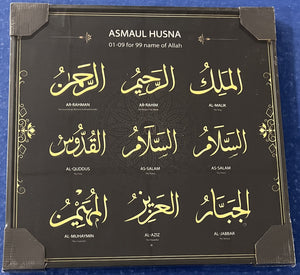 ASMAUL HUSNA
01-09 for 99 name of Allah
الرحمن
AR-RAHMAN
الرحيم
AR-RAHIM
الملك
AL-MALIK
القدوس
AL-QUDDUS
السلام
AS-SALAM
السلام
AS-SALAM
المهيمن
AL-MUHAYMIN
العزيز
AL-AZIZ
الجبار
AL-JABBAR